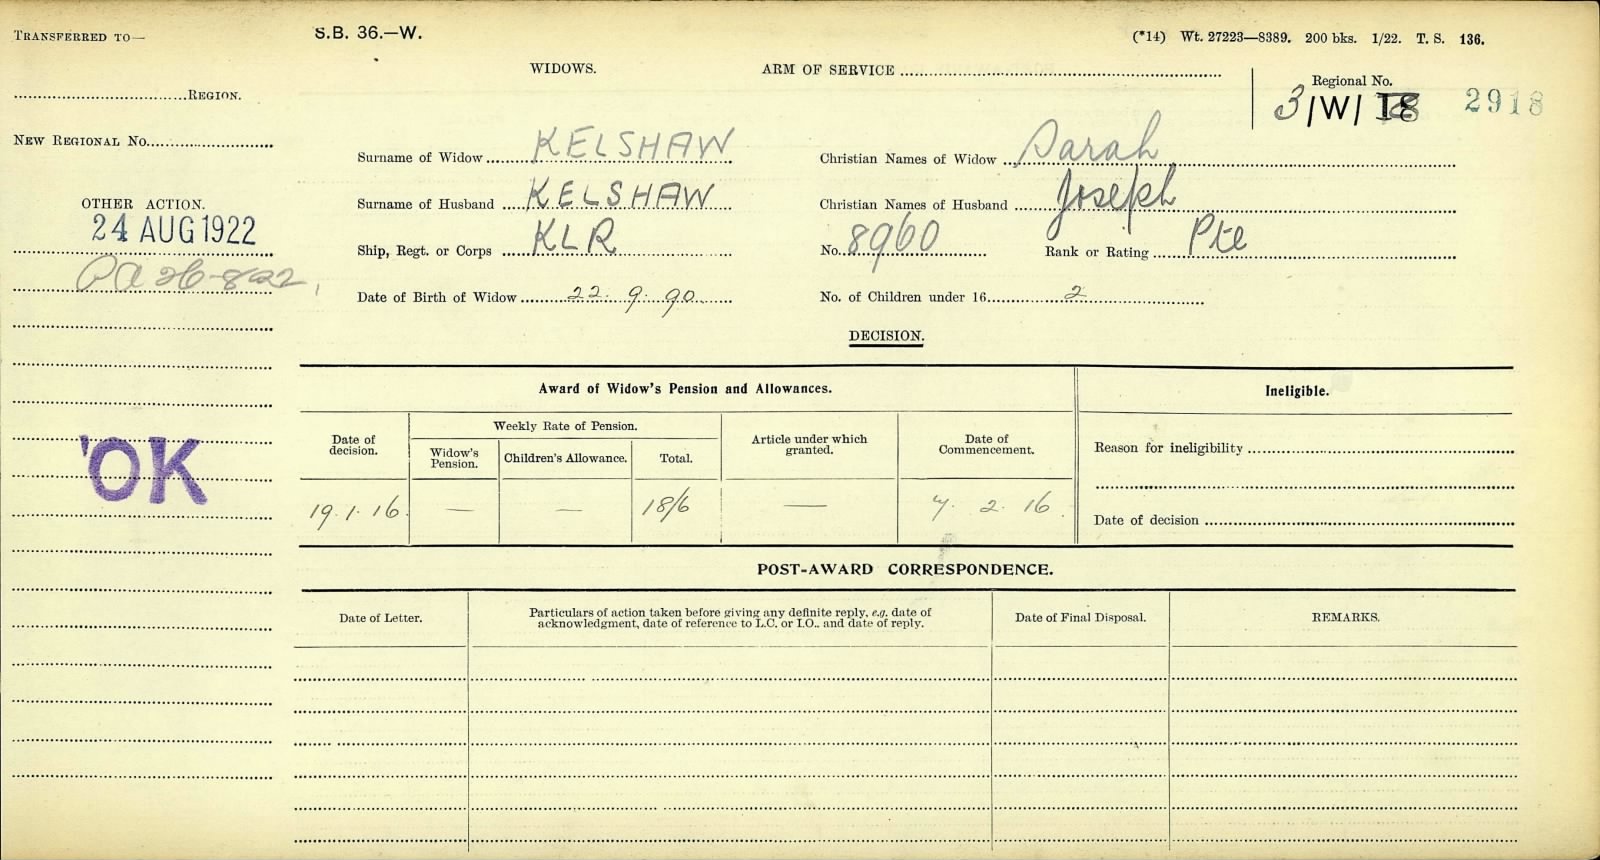 TRANSFERRED TO—
S.B. 36.—W.
(*14) Wt. 27223—8389. 200 bks. 1/22. T. S. 136.
WIDOWS.
ARM OF SERVICE
REGION.
Regional No.
3/W/18 2918
NEW REGIONAL No.
Surname of Widow KELSHAW
Christian Names of Widow Sarah
Surname of Husband KELSHAW
Christian Names of Husband Joseph
OTHER ACTION.
24 AUG 1922
Ship, Regt. or Corps KLR
No. 8960
Rank or Rating Pte
PA 26-8-22
Date of Birth of Widow 22. 9. 90
No. of Children under 16 2
DECISION.
Award of Widow's Pension and Allowances.
Ineligible.
Date of decision.
Weekly Rate of Pension.
Widow's Pension.
Children's Allowance.
Total.
Article under which granted.
Date of Commencement.
Reason for ineligibility
19. 1. 16.
—
—
18/6
—
7. 2. 16.
Date of decision
OK
POST-AWARD CORRESPONDENCE.
Date of Letter.
Particulars of action taken before giving any definite reply, e.g. date of
acknowledgment, date of reference to L.C. or I.O., and date of reply.
Date of Final Disposal.
REMARKS.